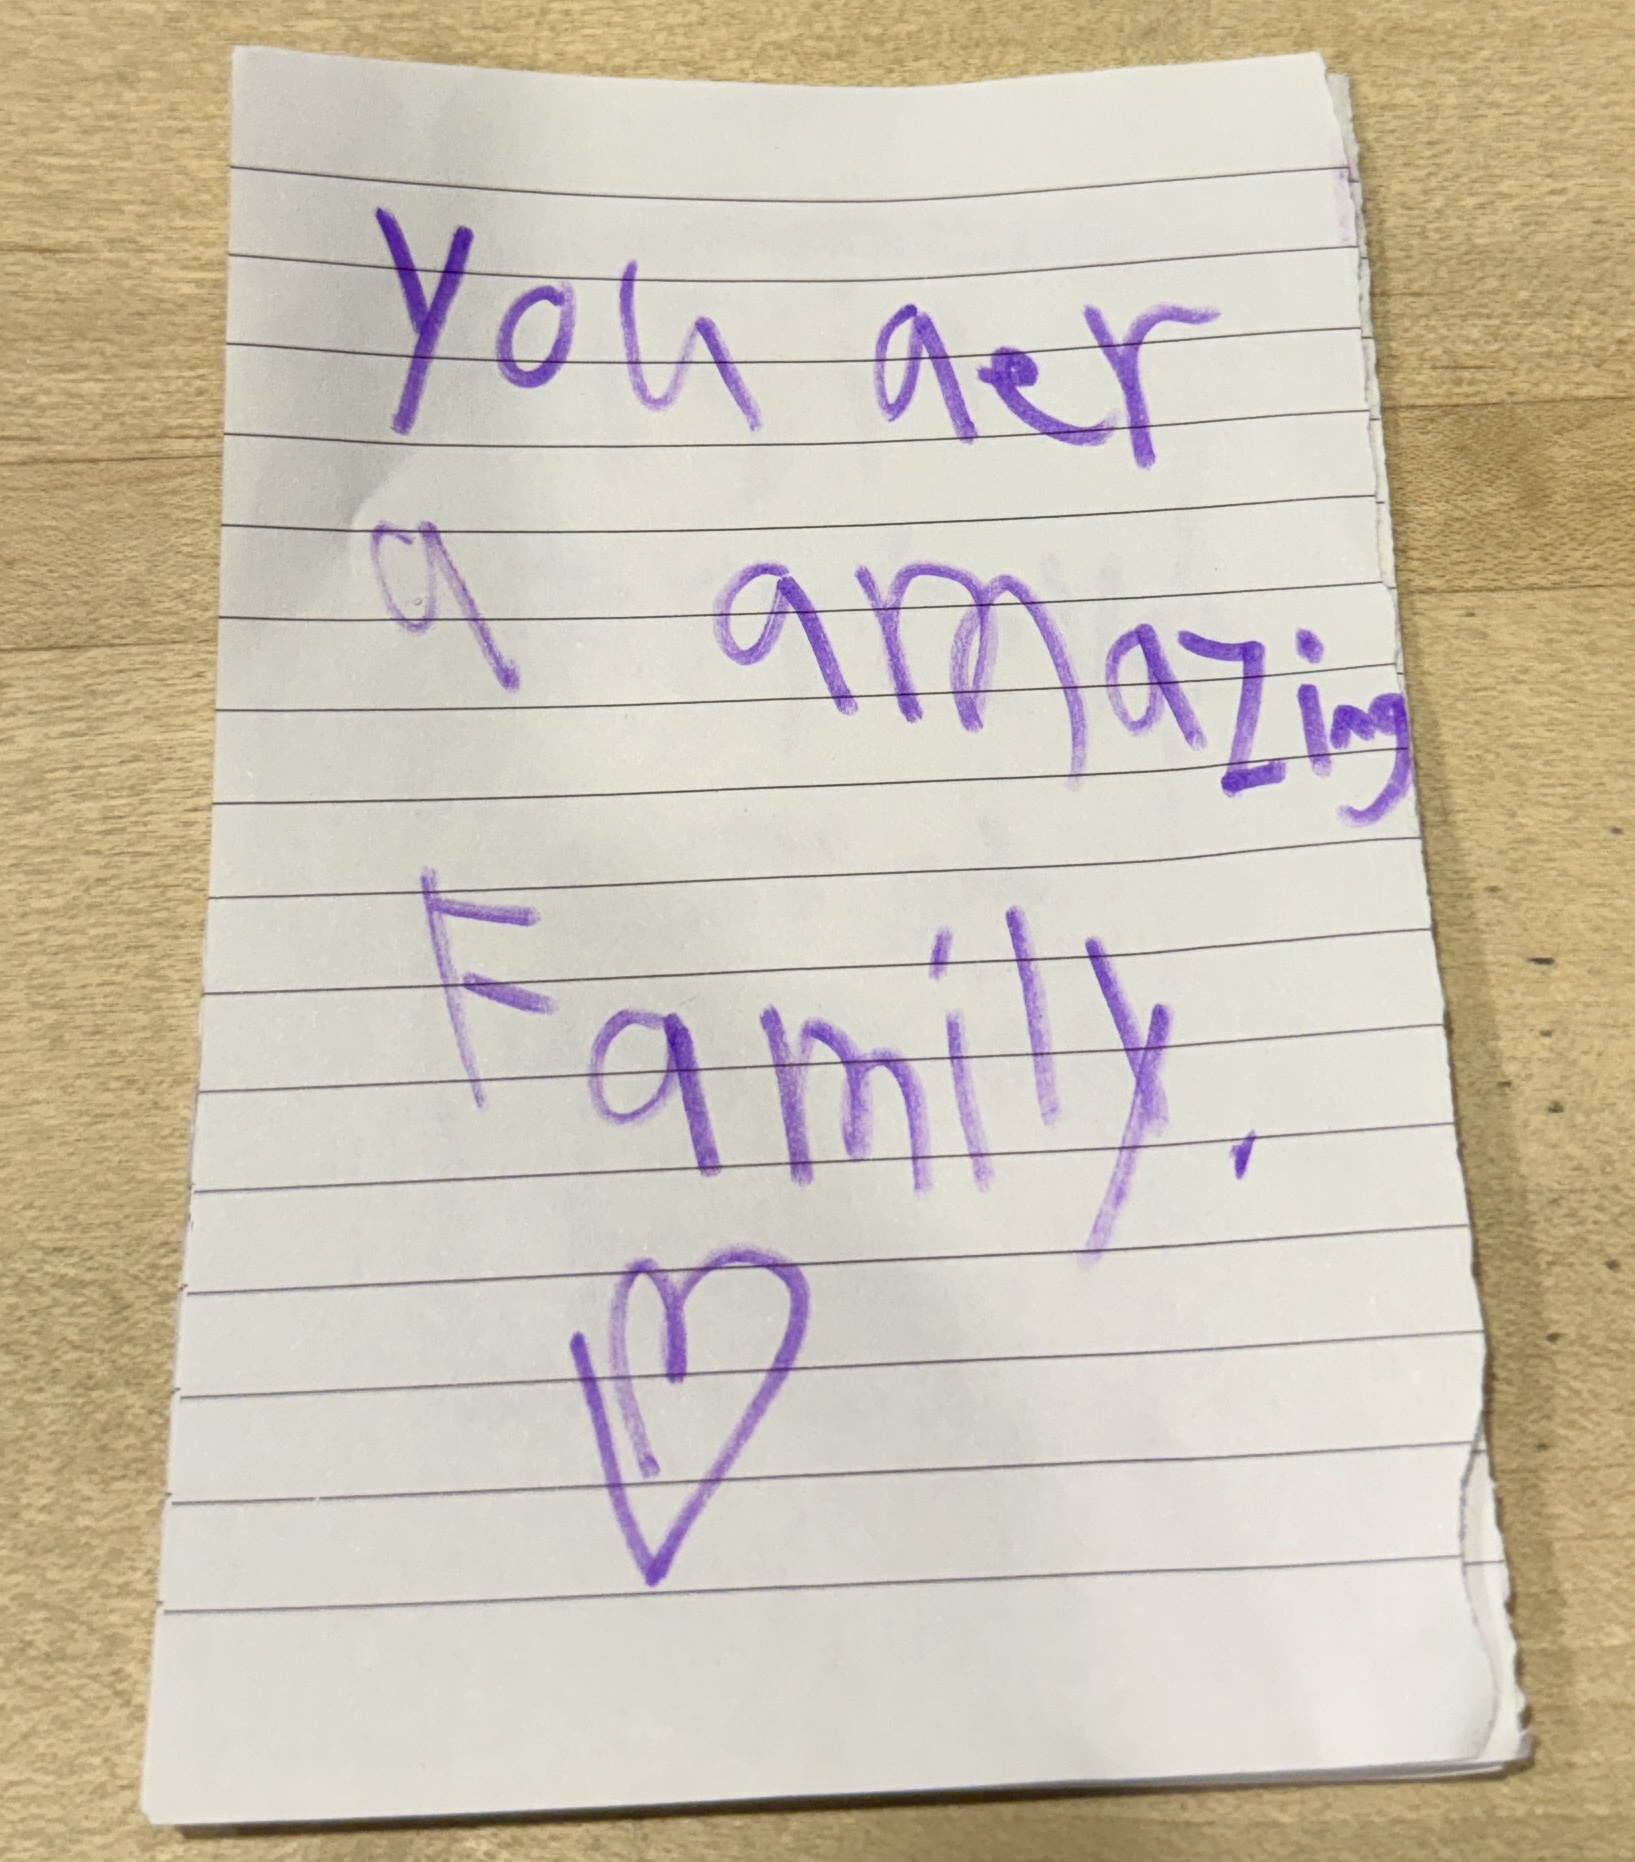 You aer
a amazing
Family.